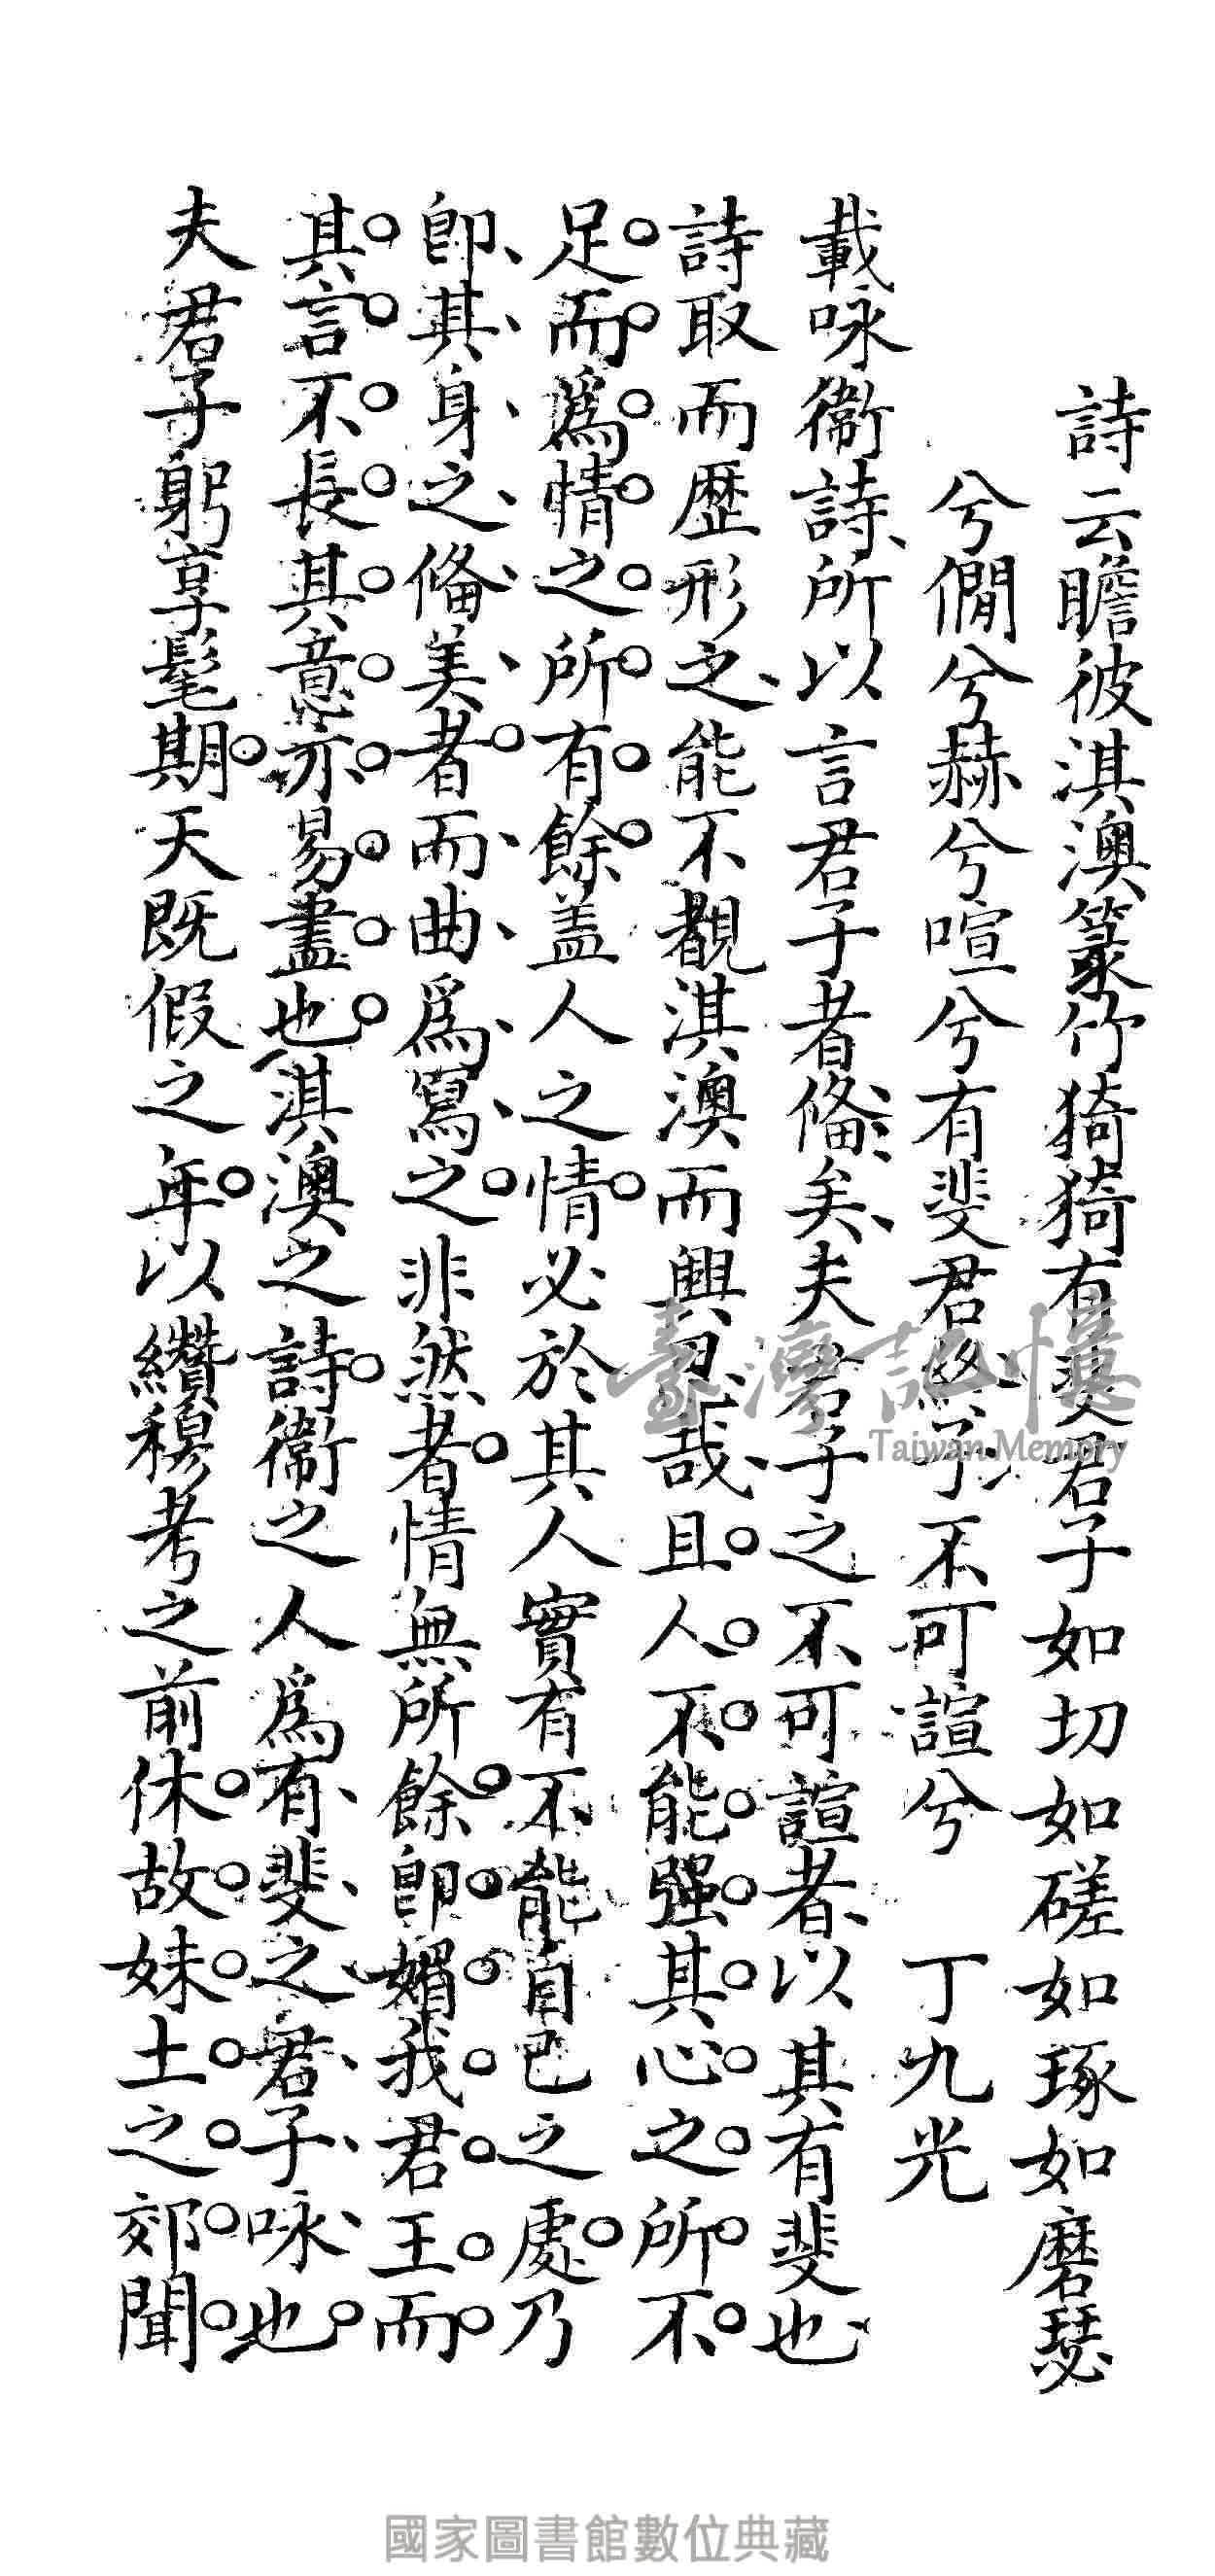 詩云瞻彼淇澳菉竹猗猗有斐君子如切如磋如琢如磨瑟
兮僩兮赫兮喧兮有斐君終子不可諠兮　丁九光
載咏衞詩所以言君子者俻矣夫君子之不可諠者以其有斐也
詩取而歷形之能不覩淇澳而興思哉且人不能强其心之所不
足而爲情之所有餘盖人之情必於其人實有不能自已之處乃
卽其身之俻美者而曲爲寫之非然者情無所餘卽媚我君王而
其言不長其意亦易盡也淇澳之詩衞之人爲有斐之君子咏也
夫君子躬享髦期天旣假之年以纘穆考之前休故妹土之郊聞
臺灣記憶
Taiwan Memory
國家圖書館數位典藏